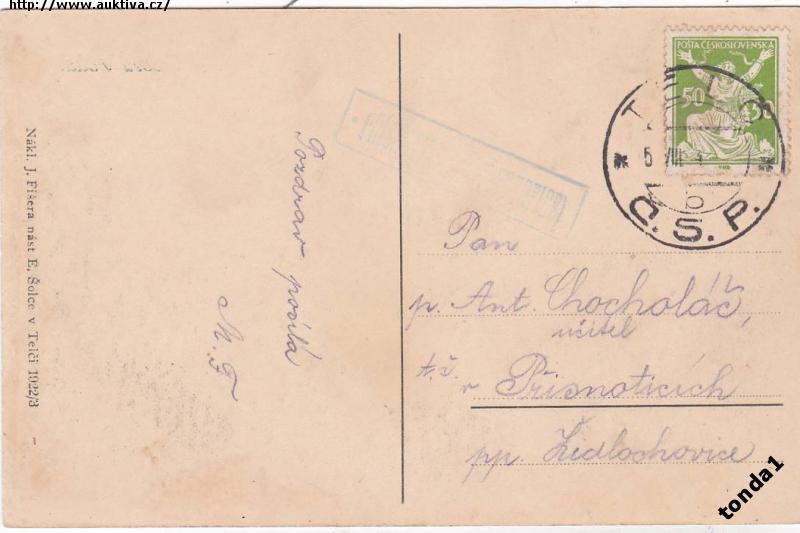 http://www.auktiva.cz/
Nákl. J. Fišera nást E. Šolce v Telči 1922/3
Pozdrav posílá
M. F
POŠTA ČESKOSLOVENSKÁ
50
TELČ
5 VIII
b
Č. S. P.
Pan
p. Ant. Chocholáč,
učitel
t. č.
v Přisnoticích
pp. Židlochovice
tonda1